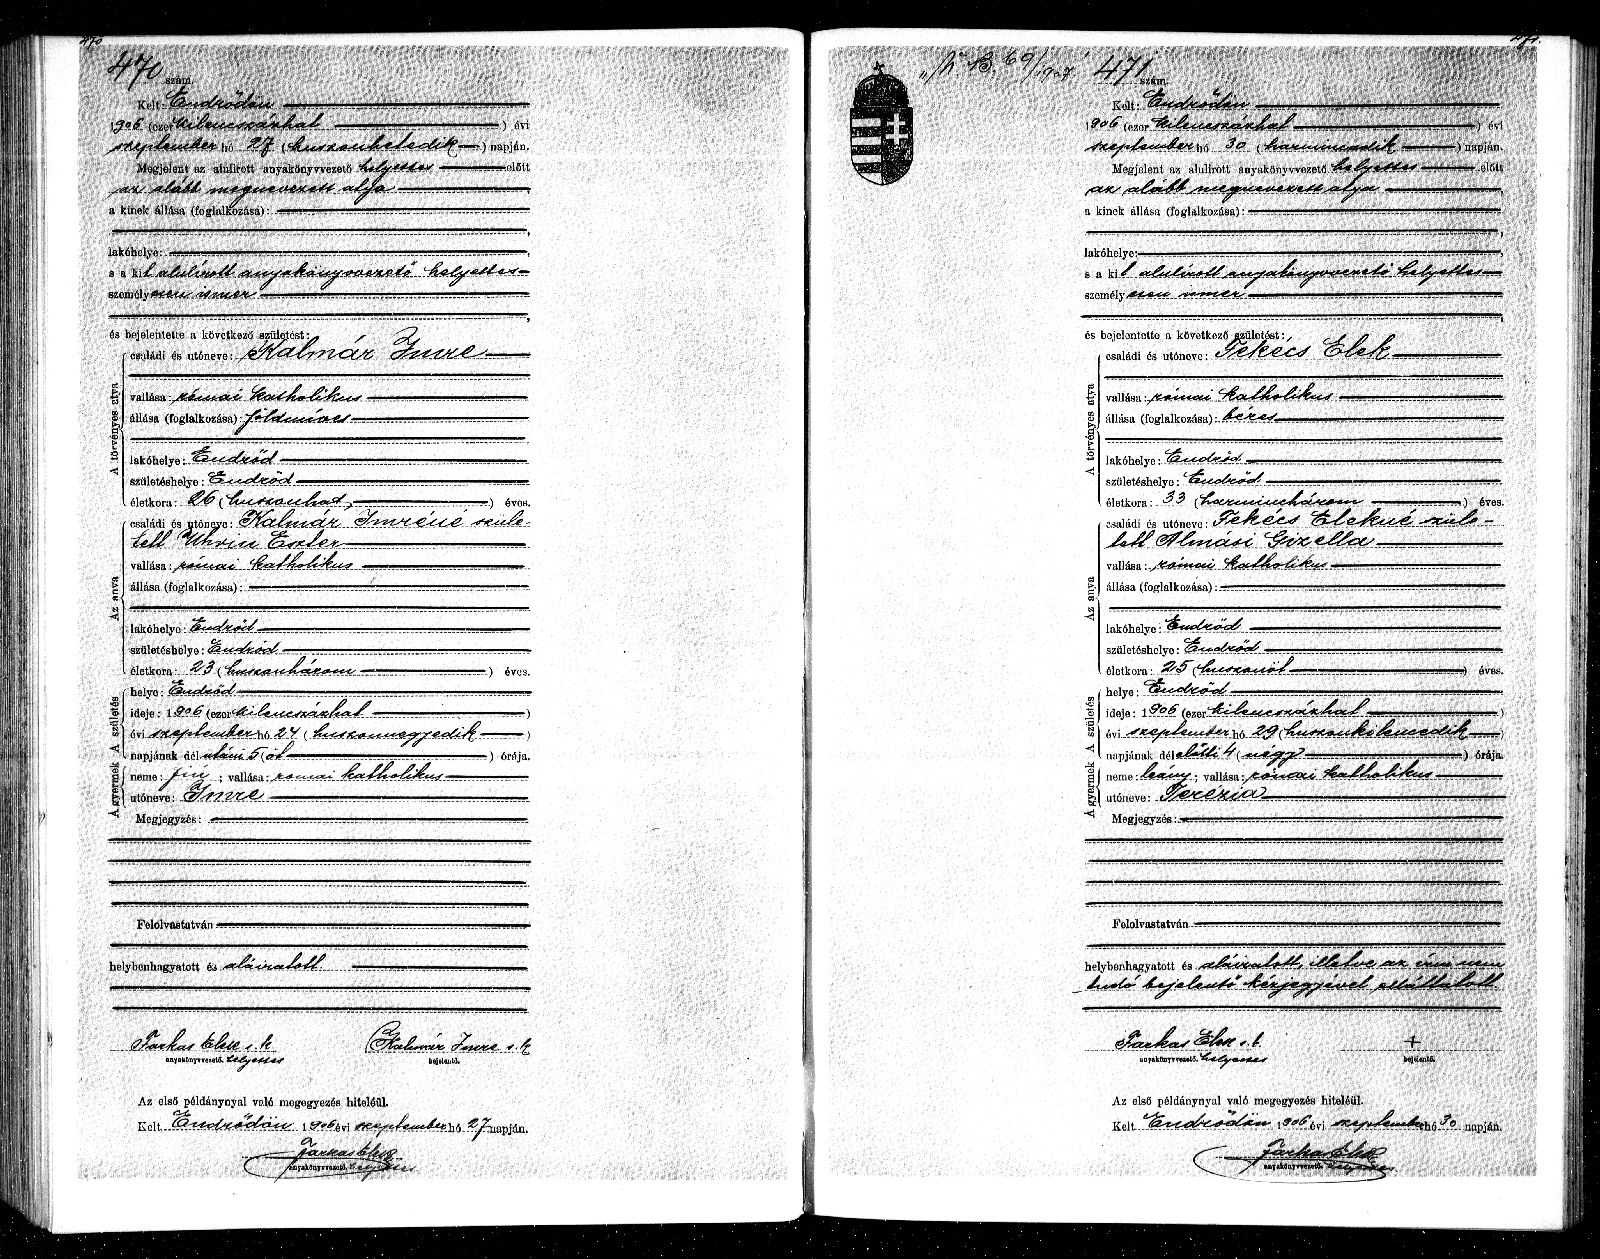 470
470 szám.
Kelt: Endrődön
1906 (ezer kilenczszázhat ) évi
szeptember hó 27 (huszonhetedik ) napján.
Megjelent az alulirott anyakönyvvezető helyettes előtt
az alább megnevezett atya
a kinek állása (foglalkozása):
lakóhelye:
s a kit alulírott anyakönyvvezető helyettes
személyesen ismer
és bejelentette a következő születést:
A törvényes atya
családi és utóneve: Kalmár Imre
vallása: római katholikus
állása (foglalkozása): földmíves
lakóhelye: Endrőd
születéshelye: Endrőd
életkora: 26 (huszonhat, ) éves.
Az anya
családi és utóneve: Kalmár Imréné szüle-
tett Uhrin Eszter
vallása: római katholikus
állása (foglalkozása):
lakóhelye: Endrőd
születéshelye: Endrőd
életkora: 23 (huszonhárom ) éves.
A gyermek A születés
helye: Endrőd
ideje: 1906 (ezer kilenczszázhat )
évi szeptember hó 24 (huszonnegyedik )
napjának dél utáni 5 (öt ) órája.
neme: fiú ; vallása: római katholikus
utóneve: Imre
Megjegyzés:
Felolvastatván
helybenhagyatott és aláiratott.
Farkas Elek s. k Kalmár Imre s. k
anyakönyvvezető. helyettes bejelentő.
Az első példánynyal való megegyezés hiteléül.
Kelt Endrődön 1906 évi szeptember hó 27 napján.
Farkas Elek
anyakönyvvezető. helyettes
471.
69/1907
471 szám.
Kelt: Endrődön
1906 (ezer kilenczszázhat ) évi
szeptember hó 30 (harminczadik ) napján.
Megjelent az alulirott anyakönyvvezető helyettes előtt
az alább megnevezett atya
a kinek állása (foglalkozása):
lakóhelye:
s a kit alulírott anyakönyvvezető helyettes
személyesen ismer
és bejelentette a következő születést:
A törvényes atya
családi és utóneve: Fekécs Elek
vallása: római katholikus
állása (foglalkozása): béres
lakóhelye: Endrőd
születéshelye: Endrőd
életkora: 33 (harminczhárom ) éves.
Az anya
családi és utóneve: Fekécs Elekné szüle-
tett Almási Gizella
vallása: római katholikus
állása (foglalkozása):
lakóhelye: Endrőd
születéshelye: Endrőd
életkora: 25 (huszonöt ) éves.
A gyermek A születés
helye: Endrőd
ideje: 1906 (ezer kilenczszázhat )
évi szeptember hó 29 (huszonkilenczedik )
napjának dél előtti 4 (négy ) órája.
neme: leány ; vallása: római katholikus
utóneve: Terézia
Megjegyzés:
Felolvastatván
helybenhagyatott és aláiratott, illetve az írni nem
tudó bejelentő kézjegyével elláttatott.
Farkas Elek s. k. +
anyakönyvvezető. helyettes bejelentő.
Az első példánynyal való megegyezés hiteléül.
Kelt Endrődön 1906 évi szeptember hó 30 napján.
Farkas Elek
anyakönyvvezető. helyettes